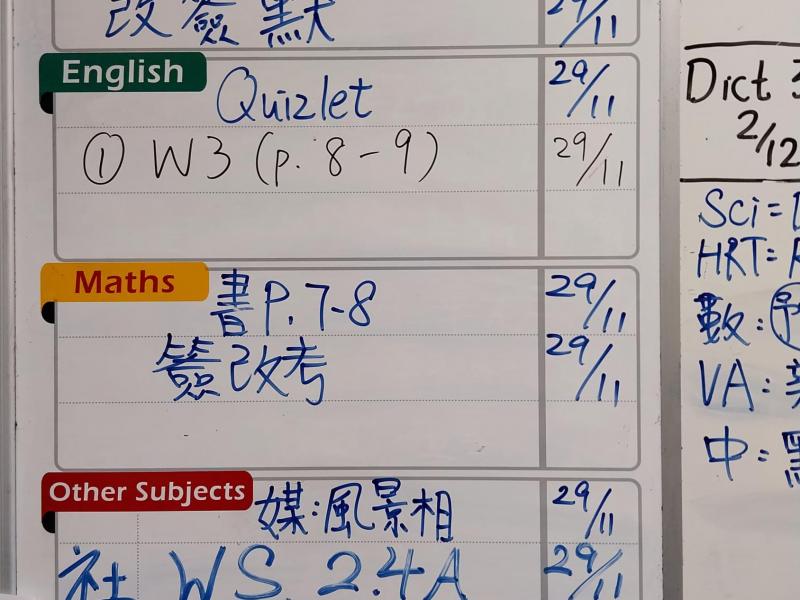 改簽默 29/11
English
Quizlet 29/11
① W3 (p. 8-9) 29/11
Maths
書P.7-8 29/11
簽改考 29/11
Other Subjects
媒:風景相 29/11
社 WS 2.4A 29/11
Dict
2/12
Sci=
HRT=
數:
VA:
中: